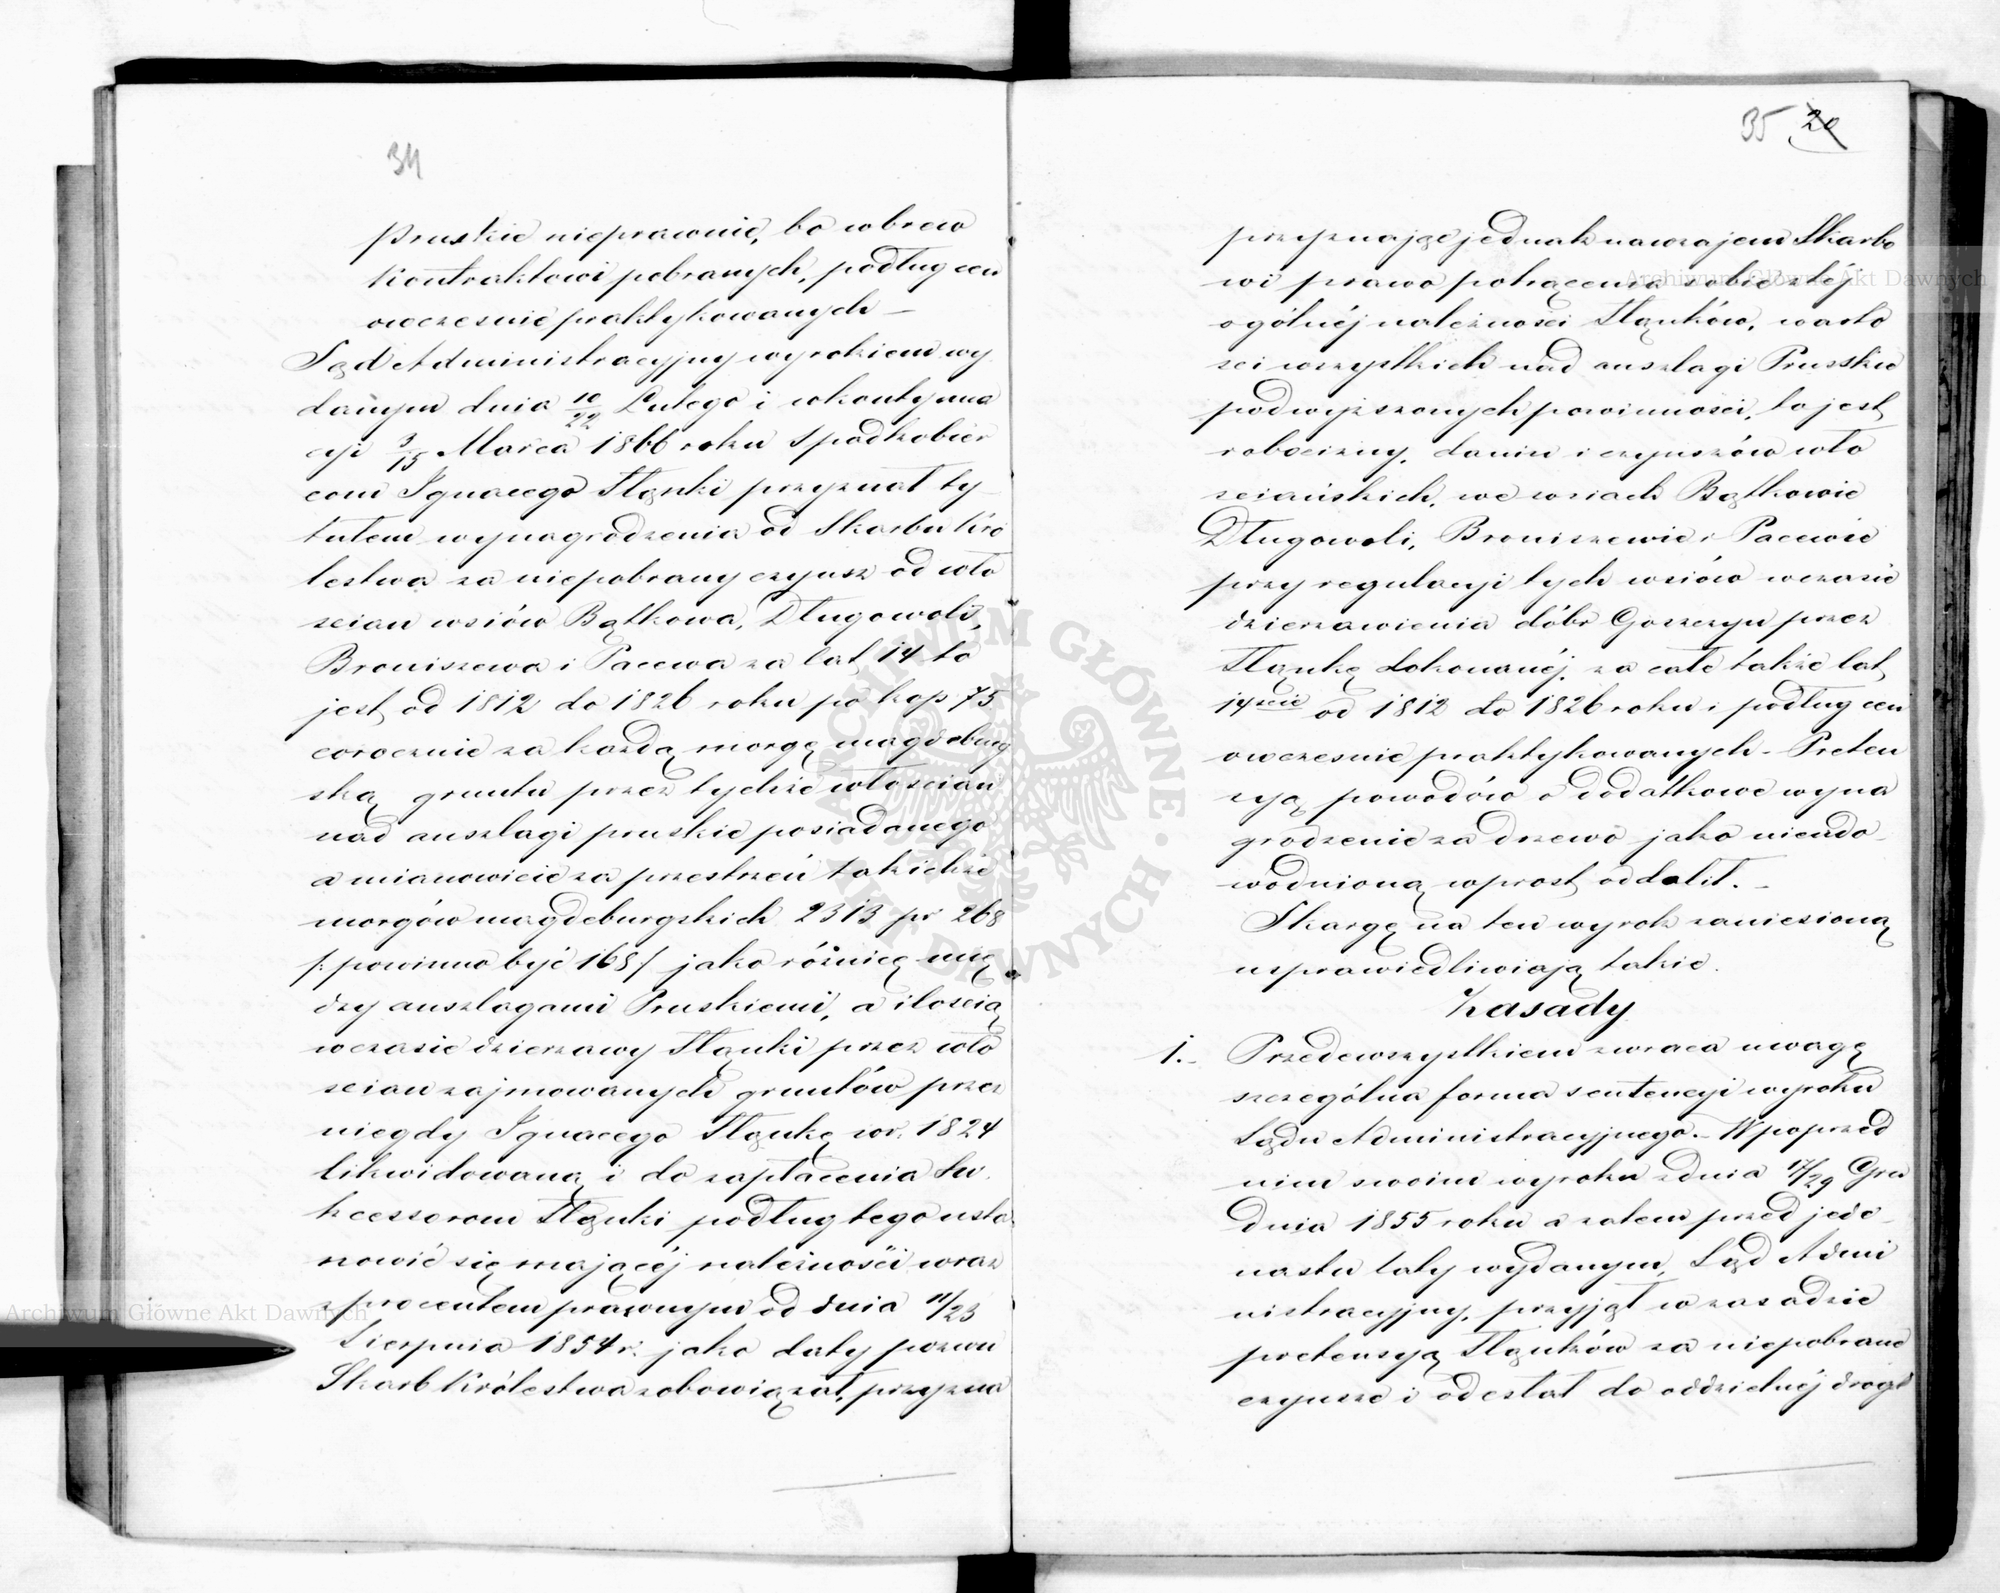 34
pruskie nieprawnie, bo wbrew
kontraktowi pobranych, podług cen
owczesnie praktykowanych —
Sąd Administracyjny wyrokiem wy
danym dnia 10/22 Lutego i wkontynua
cji 3/15 Marca 1866 roku Spadkobier
com Ignacego Tłanki przyznał ty
tułem wynagrodzenia od Skarbu Kró
lestwa za niepobrany czynsz od wło
scian wsiów Bątkowa, Długowoli,
Broniszewa i Pacewa za lat 14 to
jest od 1812 do 1826 roku po kop 75
corocznie za każdą morgę magdeburg
ską gruntu przez tychże włoscian
nad anszlagi pruskie posiadanego
a mianowicie za przestrzeń takichże
morgów magdeburgskich 2313 pr 268
/: powinno być 168 / jako różnicę mię
dzy anszlagami Pruskiemi, a iloscią
wczasie dzierzawy Tłanki przez wło
scian zajmowanych gruntów przez
niegdy Ignacego Tłankę wr. 1824
likwidowaną i do zapłacenia Su
kcessorom Tłanki podług tego usta
nowić się mającéj należności wraz
z procentem prawnym od dnia 11/23
Sierpnia 1854 r. jako daty pozwu
Skarb Królestwa zobowiązał, przyzna
35 20
przyznając jednak nawzajem Skarbo
wi prawo potrącenia sobie z téj
ogólnéj należnosci Tłanków, warto
sci wszystkich nad anszlagi Prusskie
podwyższonych powinnosci, to jest
robocizny, danin i czynszów wło
sciańskich, we wsiach Bątkowie
Długowoli, Broniszewie i Pacewie
przy regulacyi tych wsiów wczasie
dzierzawienia dóbr Goszczyn przez
Tłankę dokonanéj, za całe także lat
14scie od 1812 do 1826 roku i podług cen
owczesnie praktykowanych - Preten
syą powodów o dodatkowe wyna
grodzenie za drzewo jako nieudo
wodnioną wprost oddalił. —
Skargę na ten wyrok zaniesioną
usprawiedliwiają takie.
Zasady
1. Przedewszystkiem zwraca uwagę
szczególna forma sentencyi wyroku
Sądu Administracyjnego. - W poprzed
nim swoim wyroku zdnia 17/29 Gru
dnia 1855 roku a zatem przed jede
nastu laty wydanym, Sąd Admi
nistracyjny, przyjął w zasadzie
pretensyą Tłanków za niepobrane
czynsze i odesłał do oddzielnéj drogi
Archiwum Główne Akt Dawnych
Archiwum Główne Akt Dawnych
ARCHIWUM GŁÓWNE AKT DAWNYCH